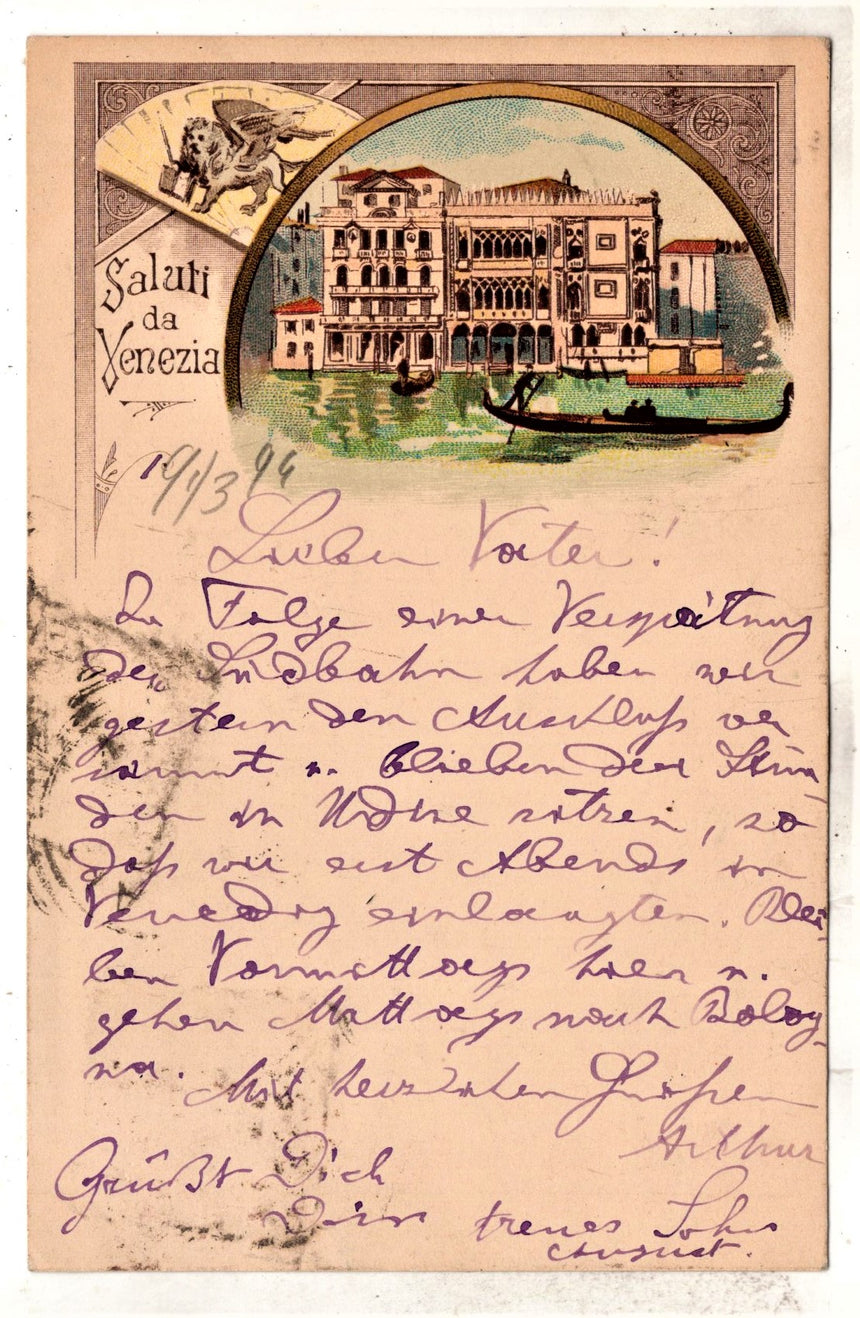 Saluti
da
Venezia
19/3 94
Lieber Vater!
In Folge einer Verspätung
der Südbahn haben wir
gestern den Anschluß ver
säumt u. blieben drei Stun-
den in Udine sitzen, so
daß wir erst Abends in
Venedig einlangten. Blei-
ben Vormittags hier u.
gehen Mittags nach Bolog-
na.
Mit herzlichen Grüßen
Arthur
Grüßt Dich
Dein treues Sohn
August.